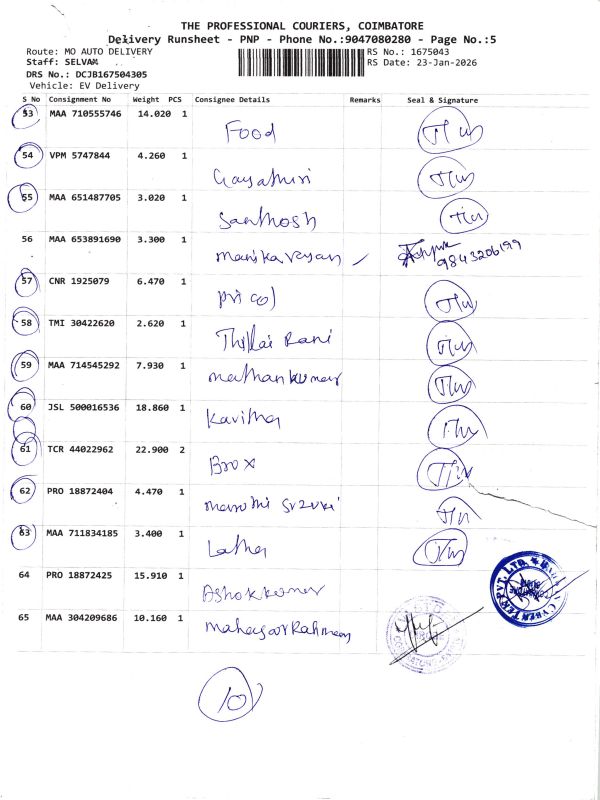 THE PROFESSIONAL COURIERS, COIMBATORE
Delivery Runsheet - PNP - Phone No.:9047080280 - Page No.:5
Route: MO AUTO DELIVERY
RS No.: 1675043
Staff: SELVAM
RS Date: 23-Jan-2026
DRS No.: DCJB167504305
Vehicle: EV Delivery
S No Consignment No Weight PCS Consignee Details Remarks Seal & Signature
53 MAA 710555746 14.020 1
Food
54 VPM 5747844 4.260 1
Gayathiri
55 MAA 651487705 3.020 1
Santhosh
56 MAA 653891690 3.300 1
9843206199
57 CNR 1925079 6.470 1
Pricol
58 TMI 30422620 2.620 1
Thillai Rani
59 MAA 714545292 7.930 1
Mathankumar
60 JSL 500016536 18.860 1
Kavitha
61 TCR 44022962 22.900 2
Brox
62 PRO 18872404 4.470 1
Maruthi Suzuki
63 MAA 711834185 3.400 1
Latha
64 PRO 18872425 15.910 1
Ashokkumar
65 MAA 304209686 10.160 1
10